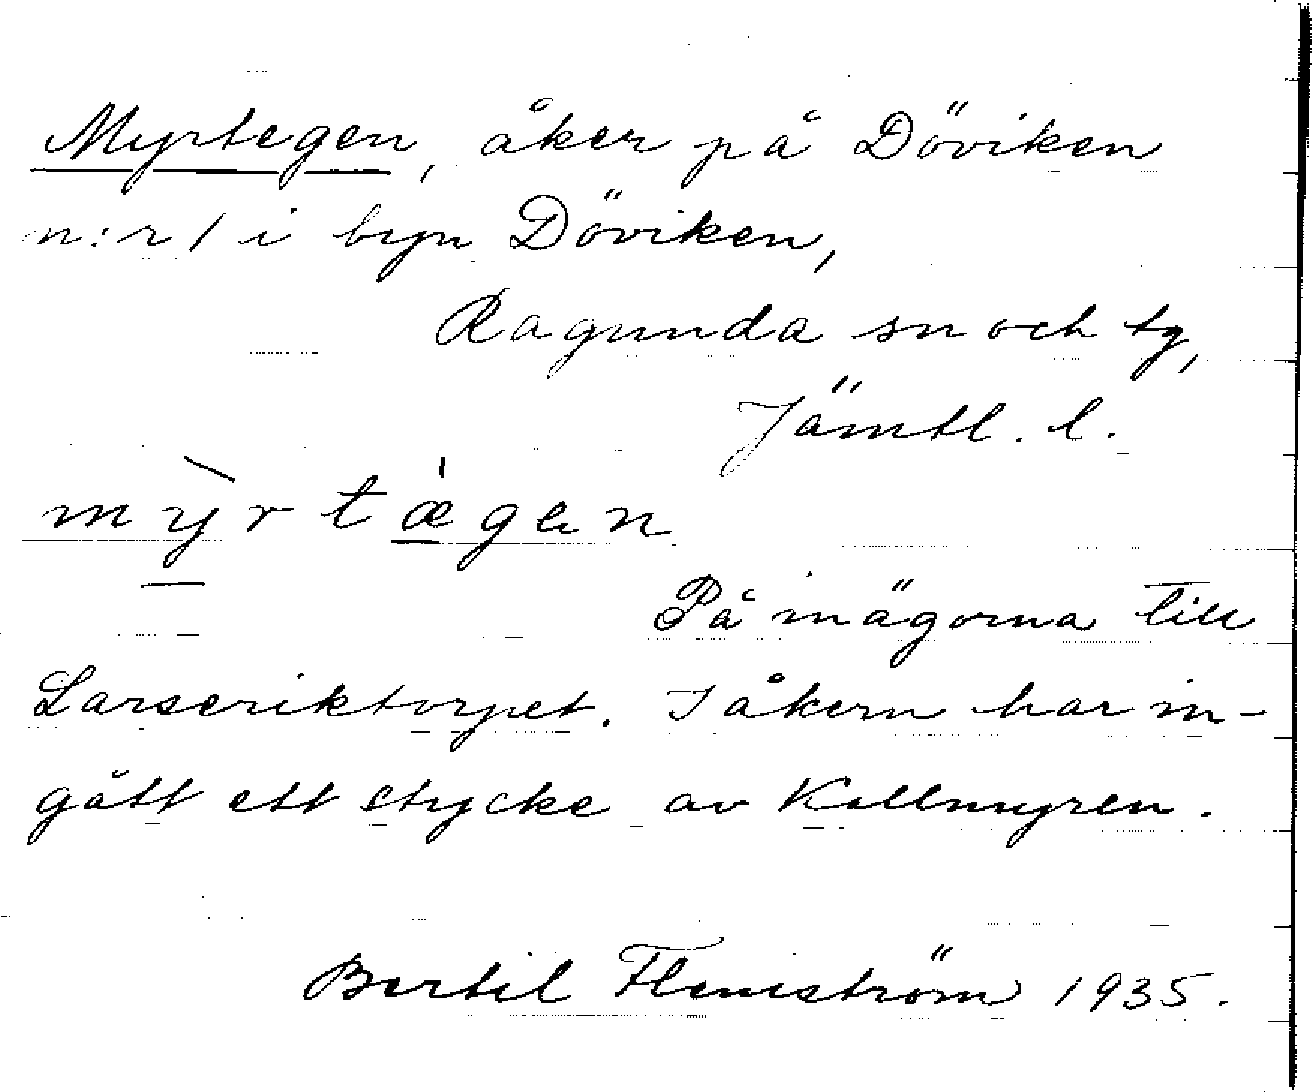 Myrtegen, åker på Döviken
n:r 1 i byn Döviken,
Ragunda sn och tg,
Jämtl. l.
mỳrtæ̍gen
På inägorna till
Larseriktorpet. I åkern har in-
gått ett stycke av Källmyren.
Bertil Flemström 1935.